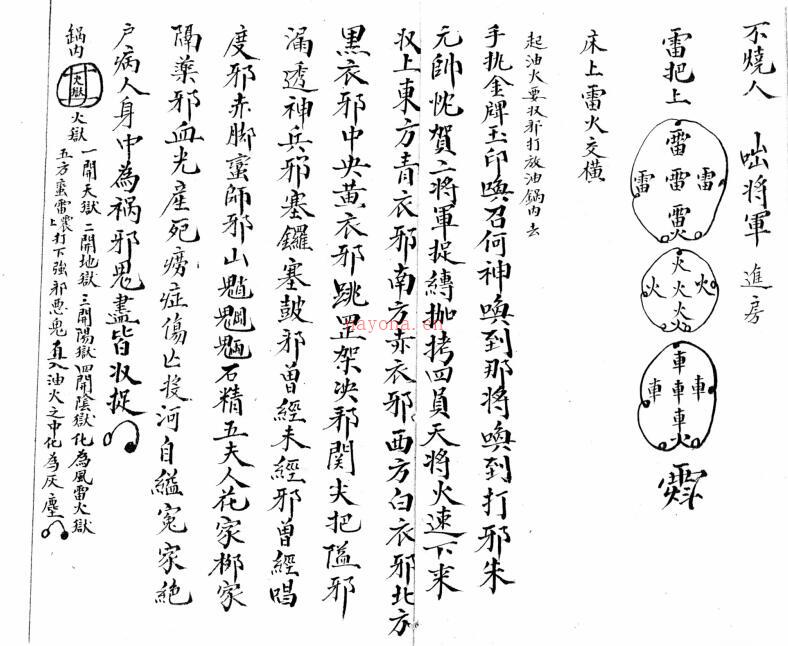 不燒人 咄將軍 進房
雷把上 雷 雷 雷 雷 火 火 火 火 火 車 車 車 車 火
床上雷火交橫
起油火要收邪打放油鍋內去
手扎金牌玉印喚召何神喚到那將喚到打邪朱
元帥忱賀二將軍捉縛枷拷四員天將火速下来
收上東方青衣邪南方赤衣邪西方白衣邪北方
黑衣邪中央黃衣邪跳罡架决邪関夫把隘邪
漏透神兵邪塞鑼塞皷邪曾經未經邪曾經唱
度邪赤脚蛮師邪山魈魍魎石精五夫人花家柳家
隔藥邪血光產死癆症傷亡投河自縊冤家絶
户病人身中為祸邪鬼盡皆收捉
鍋內 火獄 火獄 一開天獄二開地獄三開陽獄四開陰獄化為風雷火獄
五方蛮雷上打下強邪悪鬼直入油火之中化為灰塵
nayona.cn